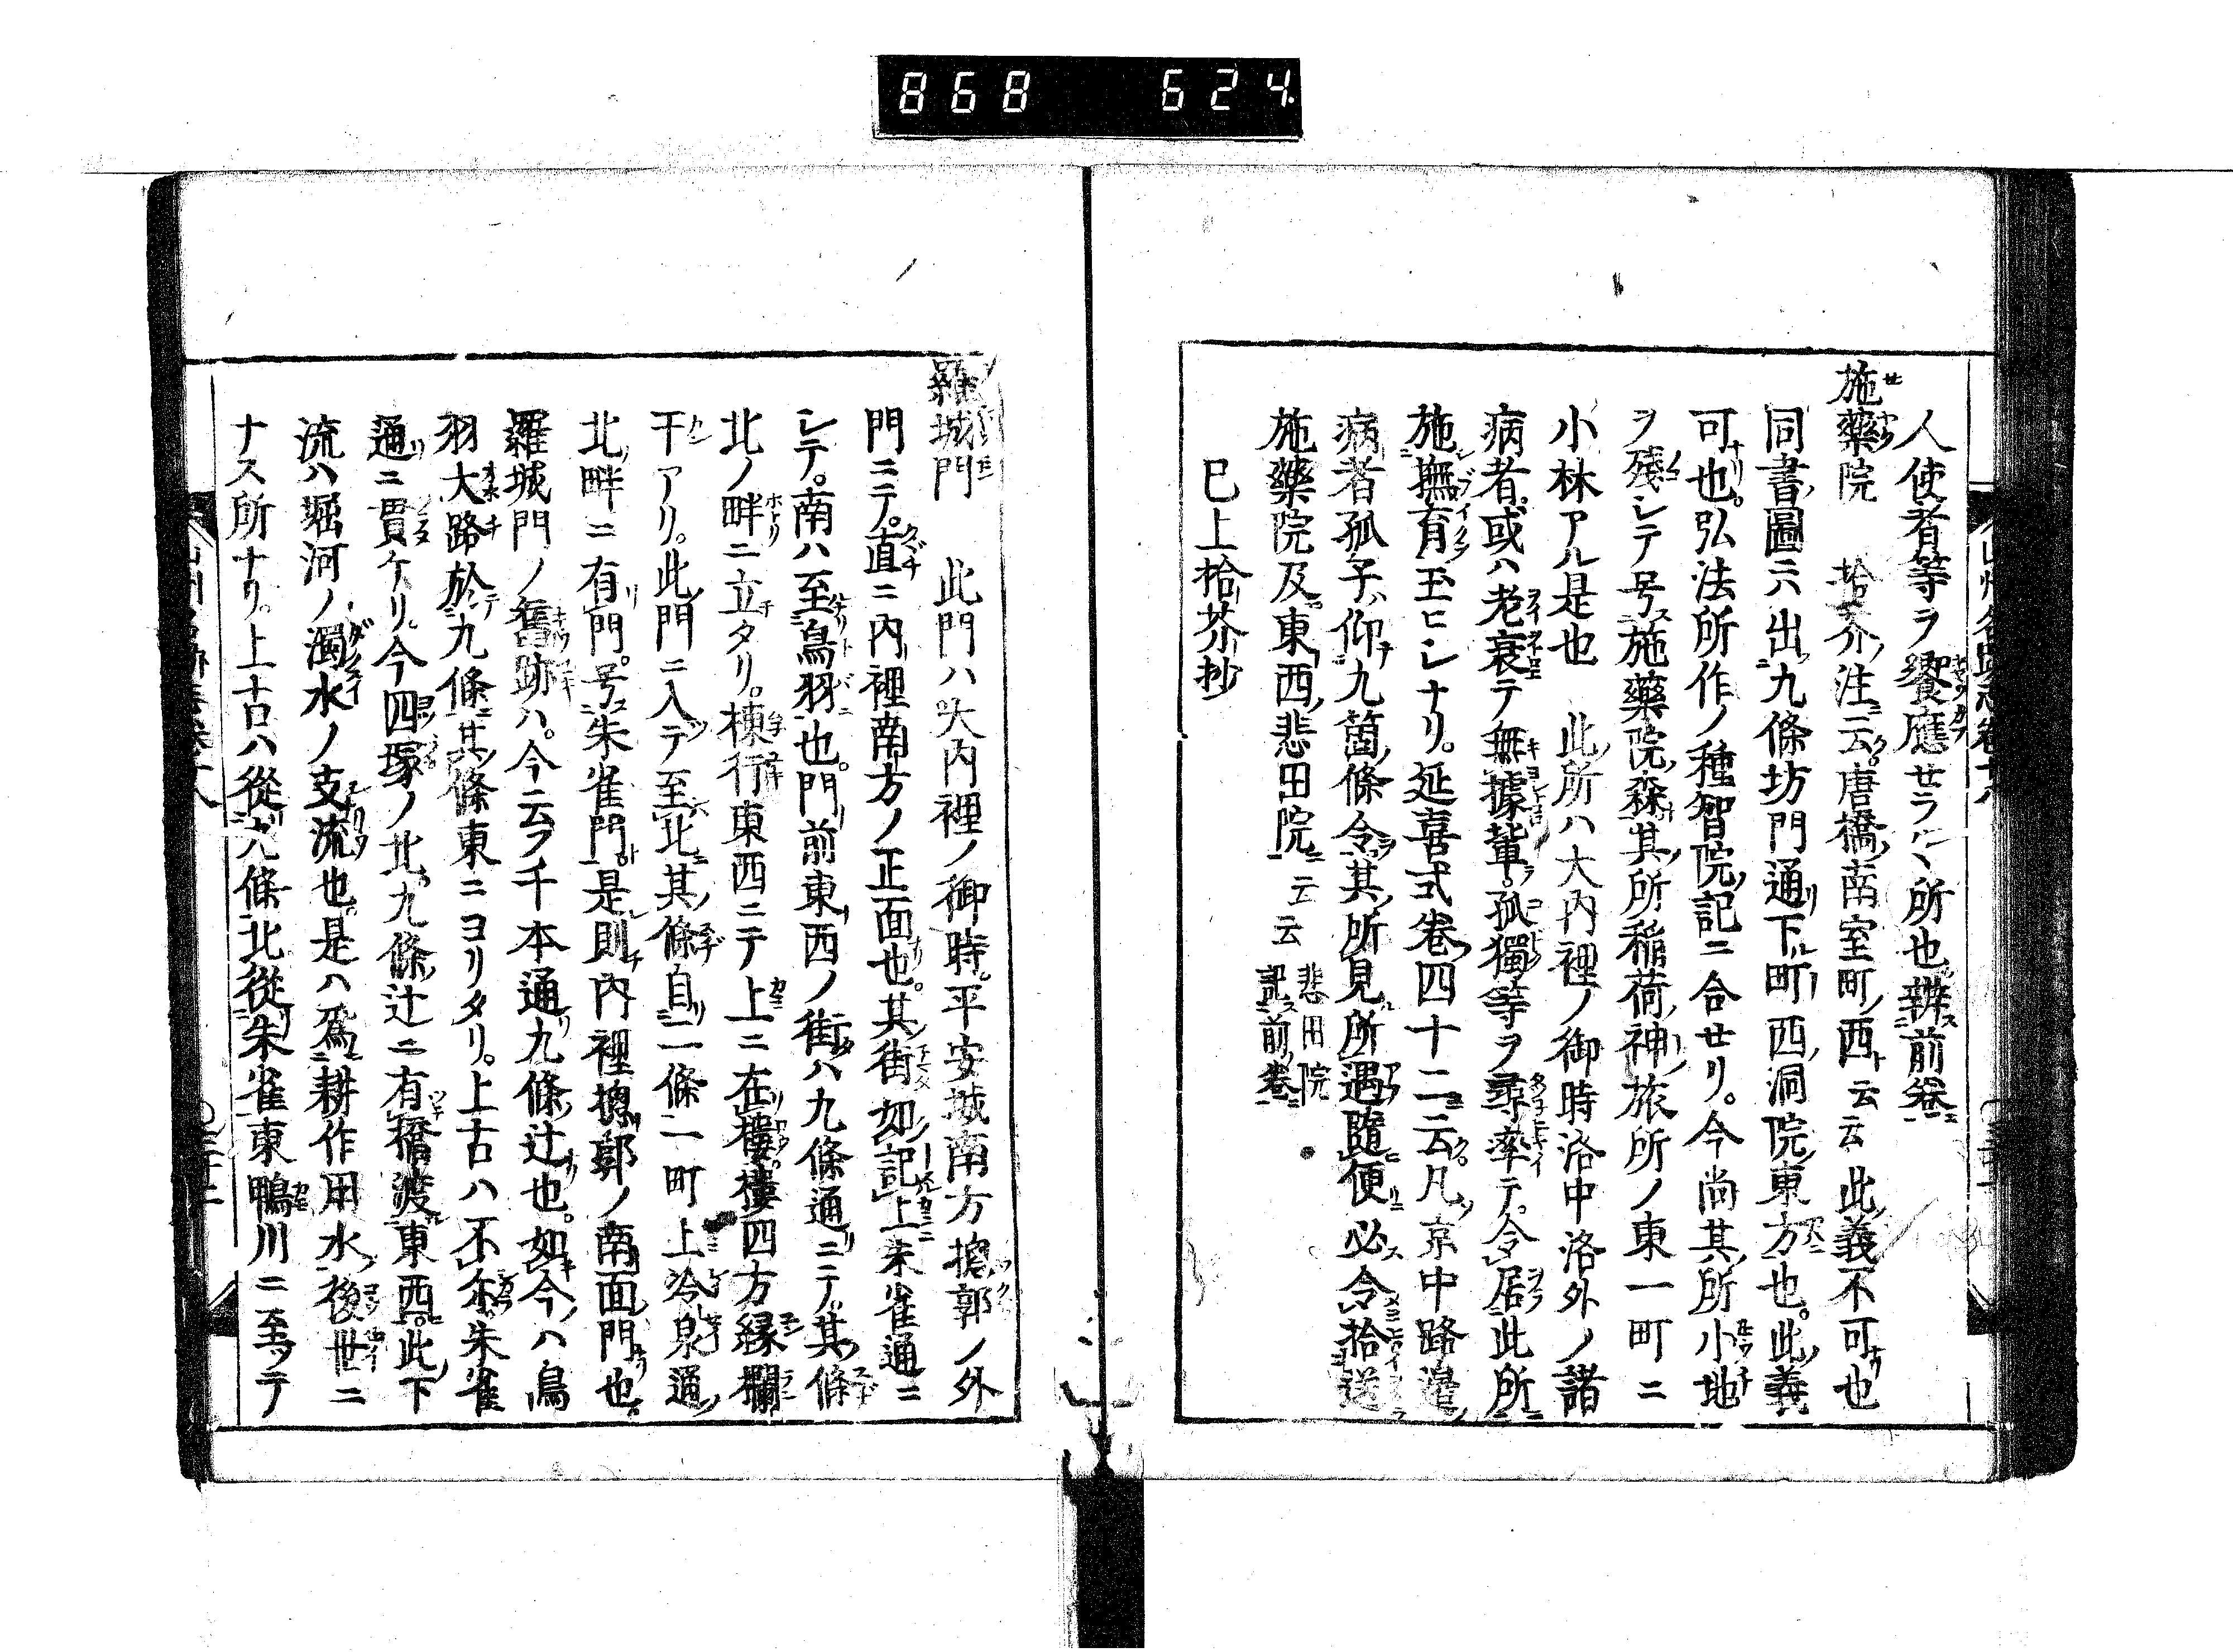 868 624
人使者等ヲ饗應セラルヽ所也辨前巻
施藥院 拾芥注云唐橋南室町西云云此義不可也
同書圖ニハ出九條坊門通下町西洞院東方也此義
可也。弘法所作ノ種智院記ニ合セリ。今尚其所小地
ヲ殘シテ号施藥院森其所稲荷神旅所ノ東一町ニ
小林アル是也 此所ハ大内裡ノ御時洛中洛外ノ諸
病者或ハ老衰テ無據輩。孤獨等ヲ尋率テ。令居此所
施撫育玉ヒシナリ。延喜式巻四十二云凡京中路邊
病者孤子仰九箇條令其所見所遇隨便必令拾送
施藥院及東西悲田院云云 悲田院記前巻
已上拾芥抄
羅城門 此門ハ大内裡ノ御時。平安城南方摠郭ノ外
門ニテ。直ニ内裡南方ノ正面也。其街如記上朱雀通ニ
シテ。南ハ至鳥羽也。門前東西ノ街ハ九條通ニテ。其條
北ノ畔ニ立タリ。棟行東西ニテ上ニ在樓。樓四方縁欄
干アリ。此門ニ入テ至北其條自二條一町上冷泉通
北畔ニ有門。号朱雀門。是則内裡摠郭ノ南面門也。
羅城門ノ舊跡ハ。今云フ千本通九條辻也。如今ハ鳥
羽大路於九條其條東ニヨリタリ。上古ハ不尓。朱雀
通ニ貫ケリ。今四塚ノ北九條辻ニ有橋渡東西。此下
流ハ堀河ノ濁水ノ支流也。是ハ爲耕作用水後世ニ
ナス所ナリ。上古ハ從九條北從朱雀東鴨川ニ至ツテ